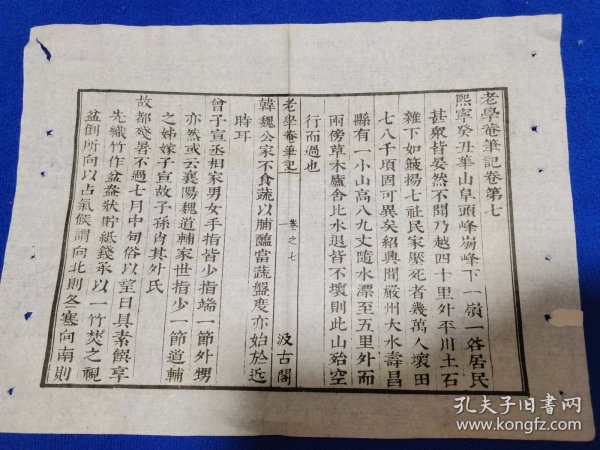 老學庵筆記卷第七
熙寧癸丑華山阜頭峰崩峰下一嶺一谷居民
甚衆皆晏然不聞乃越四十里外平川土石
雜下如簸揚七社民家壓死者幾萬人壞田
七八千頃固可異矣紹興間嚴州大水壽昌
縣有一小山高八九丈隨水漂至五里外而
兩傍草木廬舍比水退皆不壞則此山殆空
行而過也
老學庵筆記
卷之七
一
汲古閣
韓魏公家不食蔬以脯醢當蔬盤度亦始於近
時耳
曾子宣丞相家男女手指皆少指端一節外甥
亦然或云襄陽魏道輔家世指少一節道輔
之姊嫁子宣故子孫肖其外氏
故都殘暑不過七月中旬俗以望日具素饌享
先織竹作盆盎狀貯紙錢承以一竹焚之視
盆倒所向以占氣候謂向北則冬寒向南則
孔夫子旧书网
www.kongfz.com